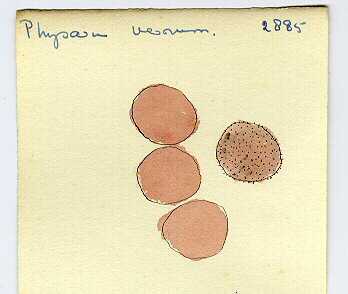 Physarum verum. 2885